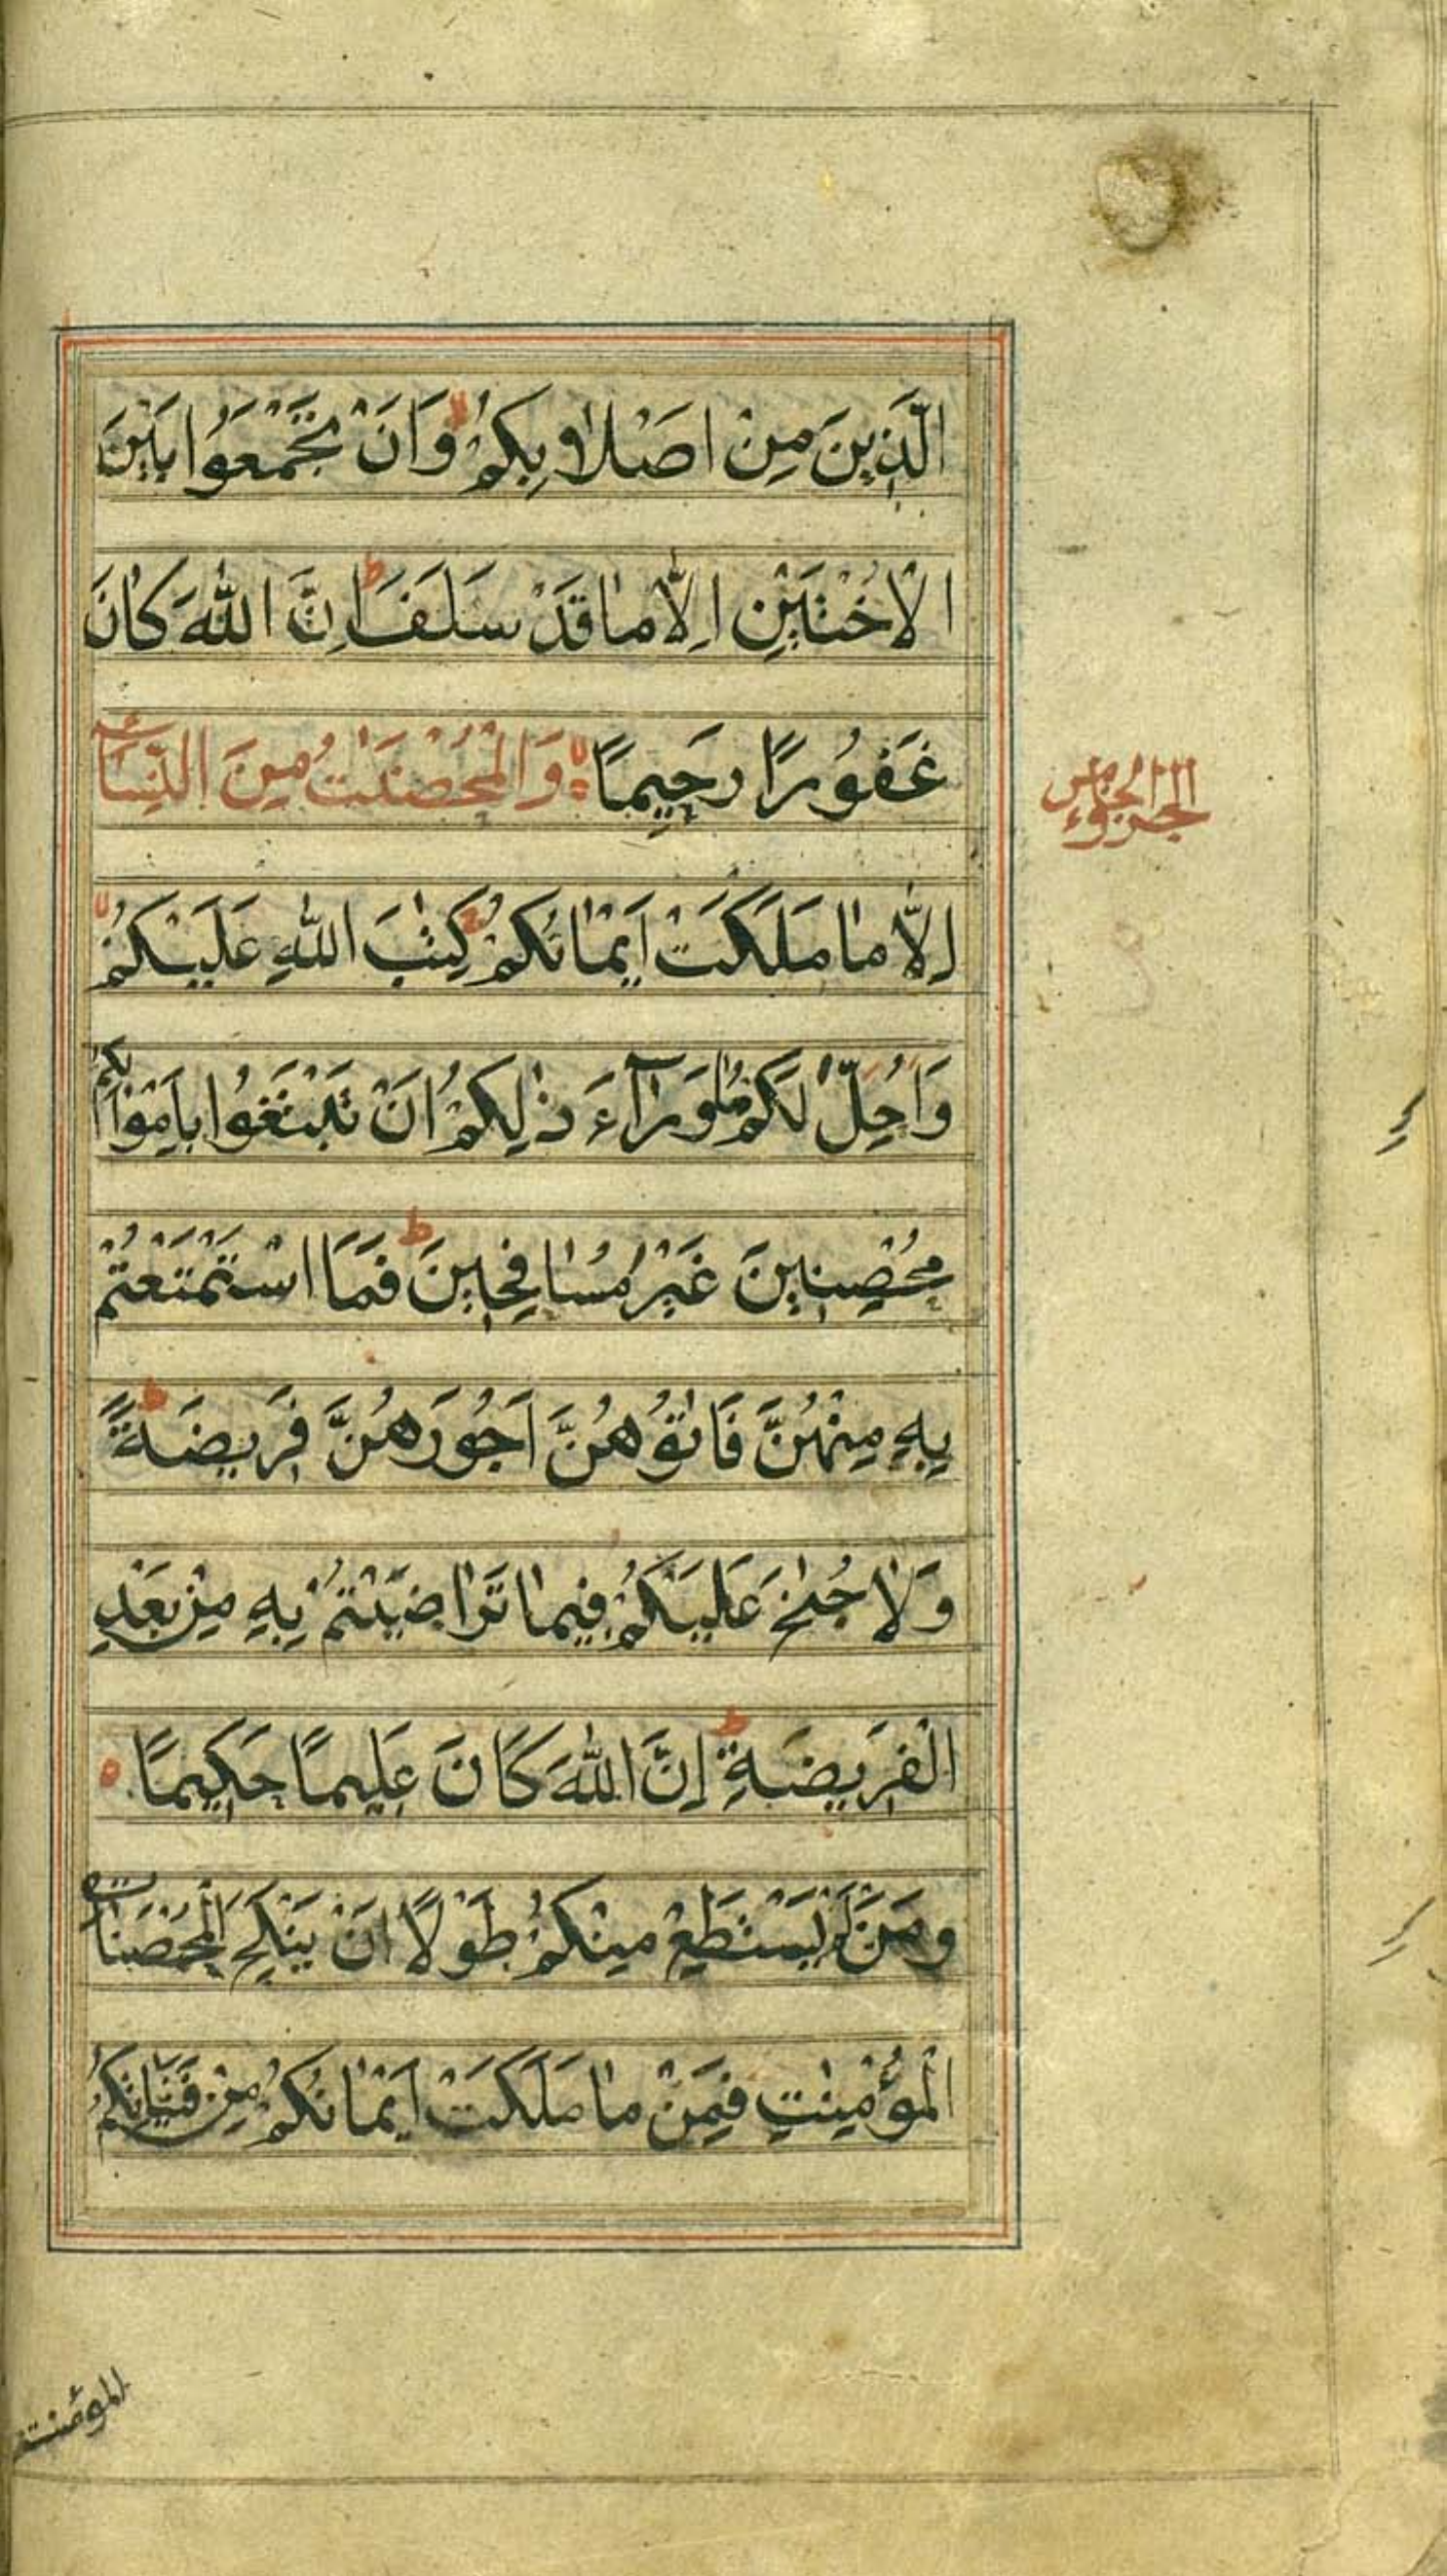 الَّذِينَ مِنْ اَصْلَابِكُمْ وَاَنْ تَجْمَعُوا بَيْنَ
الْاُخْتَيْنِ اِلَّا مَا قَدْ سَلَفَ ط اِنَّ اللّٰهَ كَانَ
غَفُورًا رَحِيمًا وَالْمُحْصَنٰتُ مِنَ النِّسَاءِ
الجزء الخامس
اِلَّا مَا مَلَكَتْ اَيْمَانُكُمْ كِتٰبَ اللّٰهِ عَلَيْكُمْ
وَاُحِلَّ لَكُمْ مَا وَرَآءَ ذٰلِكُمْ اَنْ تَبْتَغُوا بِاَمْوَالِكُمْ
مُحْصِنِينَ غَيْرَ مُسَافِحِينَ ط فَمَا اسْتَمْتَعْتُمْ
بِهِ مِنْهُنَّ فَاٰتُوهُنَّ اُجُورَهُنَّ فَرِيضَةً ط
وَلَا جُنٰحَ عَلَيْكُمْ فِيمَا تَرَاضَيْتُمْ بِهِ مِنْ بَعْدِ
الْفَرِيضَةِ ط اِنَّ اللّٰهَ كَانَ عَلِيمًا حَكِيمًا
وَمَنْ لَمْ يَسْتَطِعْ مِنْكُمْ طَوْلًا اَنْ يَنْكِحَ الْمُحْصَنَاتِ
الْمُؤْمِنٰتِ فَمِنْ مَا مَلَكَتْ اَيْمَانُكُمْ مِنْ فَتَيَاتِكُمُ
المؤمنت